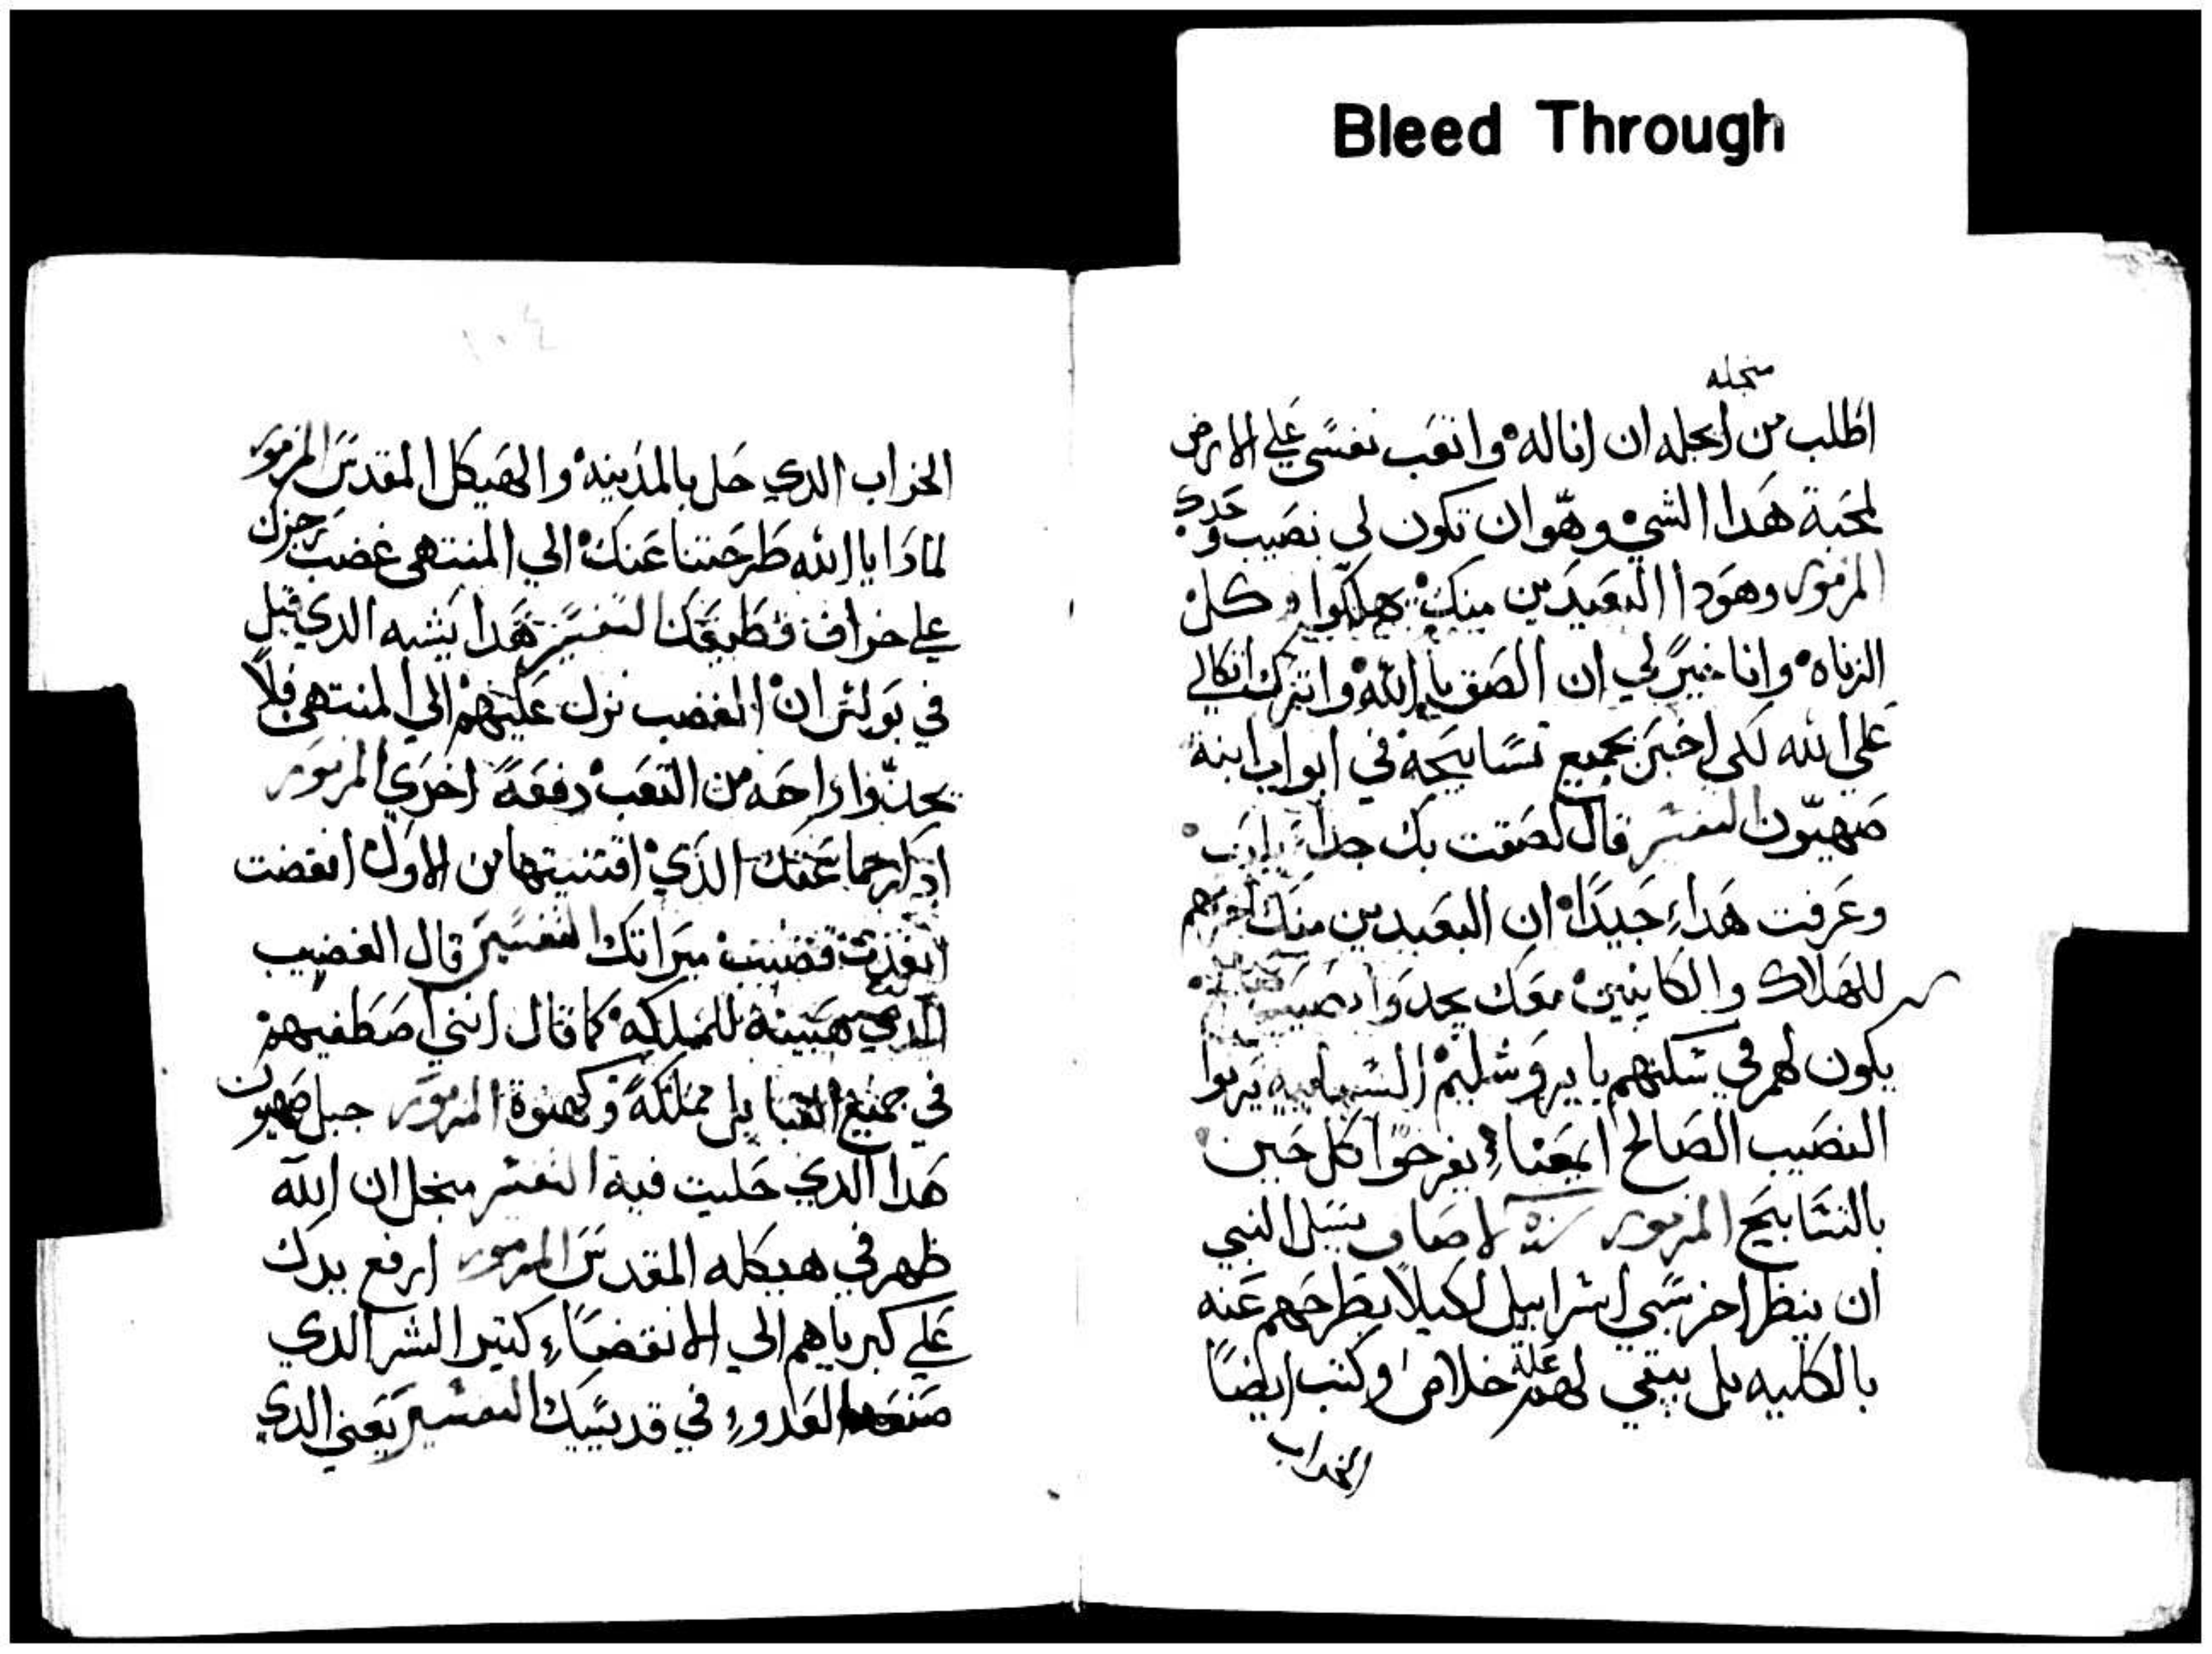 Bleed Through
منجله
اطلب من اجله ان اناله واتعب نفسي علي الارض
لمحبة هدا الشي وهو ان تكون لي نصيب وحدك
المزمور وهودا البعيدين منك يهلكوا وكل
الزناه وانا خير لي ان الصق بالله واترك اتكالي
علي الله لكي اخبر بجميع تسابيحه في ابواب ابنة
صهيون التفسير قال لصقت بك جدا يارب
وعرفت هداء جيدا ان البعيدين منك اخرهم
للهلاك والكاينين معك يجدوا نصيب
يكون لهم في شكلتهم يا يروشليم السماييه يرتوا
النصيب الصالح المعناء يفرحوا كل حين
بالتسابيح المزمور لاصاف يسل النبي
ان ينظر اخر سبي اسراييل لكيلا يطرحهم عنه
بالكليه بل يبقي لهم علة خلاص وكتب ايضا
الخراب
١٠٤
الخراب الدي حل بالمدينة والهيكل المقدس المزمور
لمادا يا الله طرحتنا عنك الي المنتهي غضب رجزك
علي خراف قطيعك التفسير هدا يشبه الدي قيل
في بولس ان الغضب نزل عليهم الي المنتهي فلا
يجدوا راحه من التعب دفعة اخري المزمور
ادكر جماعتك الدي اقتنيتها من الاول انقضت
انقدت قضيب ميراتك التفسير قال الغضيب
الدي هيينة للمملكه كما قال انني اصطفيهم
في جميع القبايل مملكة وكهنوة المزمور جبل صهيون
هدا الدي حليت فيه التفسير منجل ان الله
ظهر في هيكله المقدس المزمور ارفع يدك
علي كبرياهم الي الانقضاء كتير الشر الدي
صنعه العدو في قديسيك التفسير يعني الدي